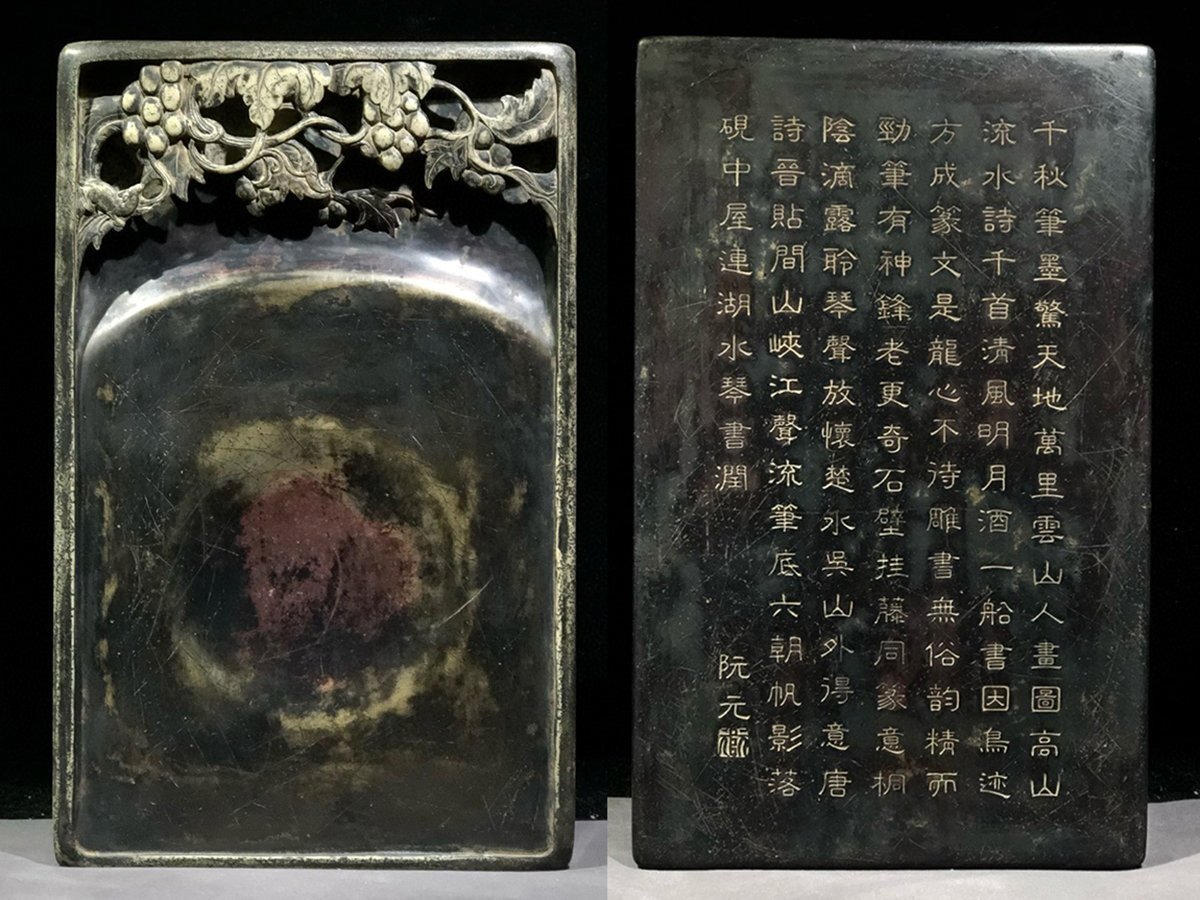 千秋筆墨驚天地萬里雲山人畫圖高山
流水詩千首清風明月酒一船書因鳥迹
方成篆文是龍心不待雕書無俗韵精而
勁筆有神鋒老更奇石壁挂藤同篆意桐
陰滴露聆琴聲放懷楚水吳山外得意唐
詩晉貼間山峽江聲流筆底六朝帆影落
硯中屋連湖水琴書潤
阮元